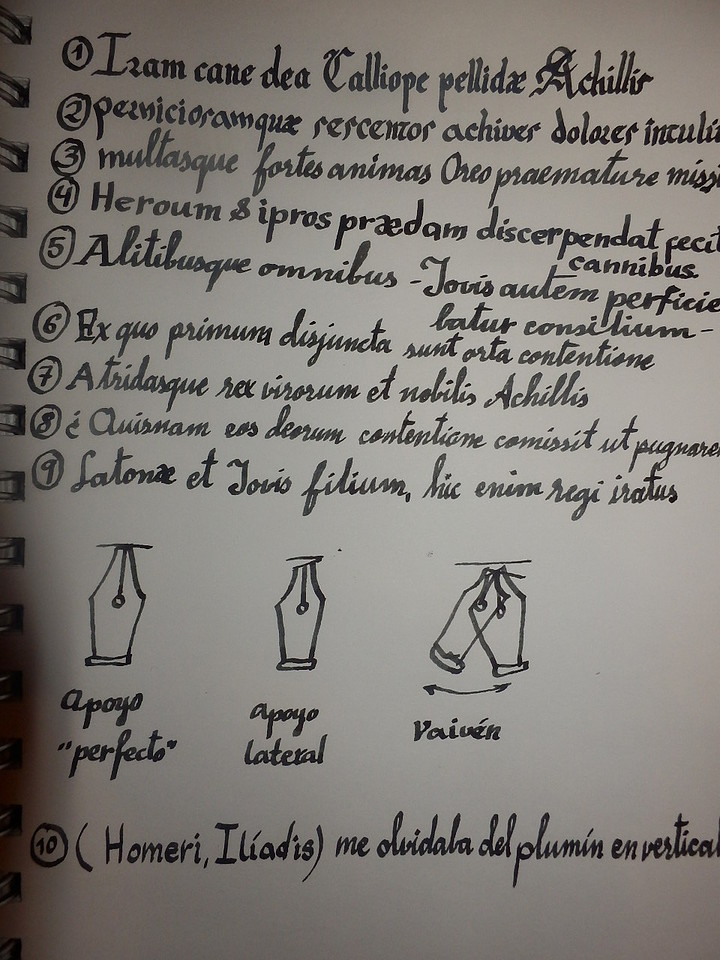 ① Iram cane dea Calliope pellidæ Achillis
② perniciosamquæ sescentos achives dolores intulit
③ multasque fortes animas Oreo praemature missi
④ Heroum & ipros prædam discerpendat fecit
cannibus.
⑤ Alitibusque omnibus - Jovis autem perficie
batur consilium -
⑥ Ex quo primum disjuncta sunt orta contentione
⑦ Atridasque rex virorum et nobilis Achillis
⑧ ¿ Quisnam eos deorum contentione comissit ut pugnaren
⑨ Latonæ et Jovis filium, hic enim regi iratus
apoyo
"perfecto"
apoyo
lateral
Vaivén
⑩ ( Homeri, Ilíadis) me olvidaba del plumín en vertical